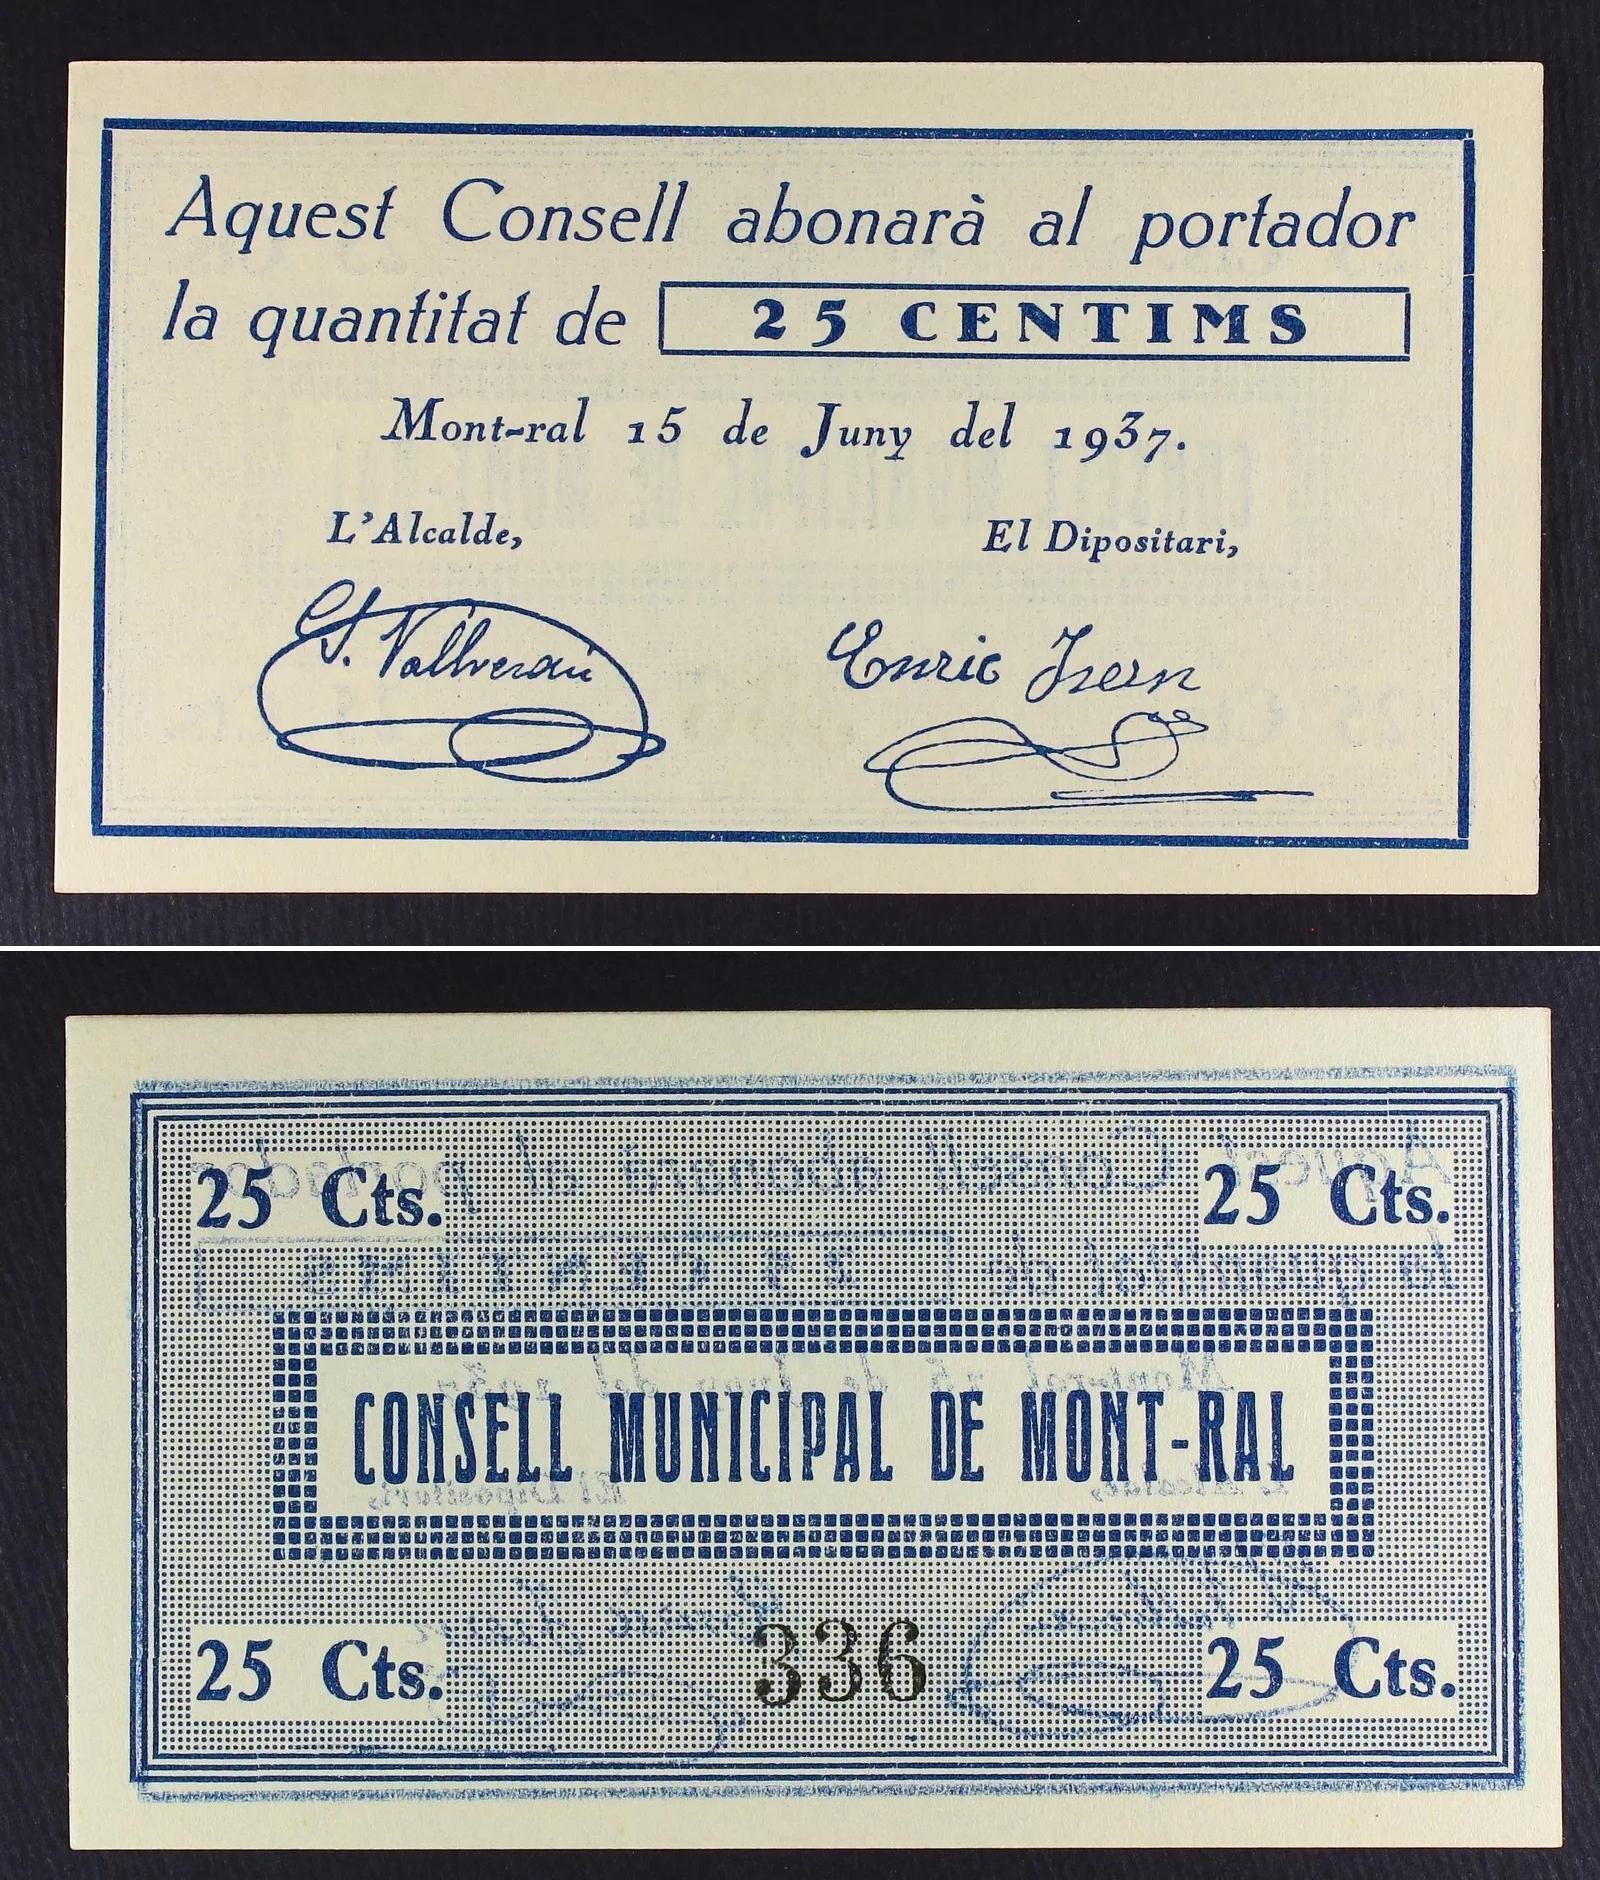 Aquest Consell abonarà al portador
la quantitat de 25 CENTIMS
Mont-ral 15 de Juny del 1937.
L'Alcalde, El Dipositari,
Enric Isern
25 Cts. 25 Cts.
CONSELL MUNICIPAL DE MONT-RAL
25 Cts. 336 25 Cts.